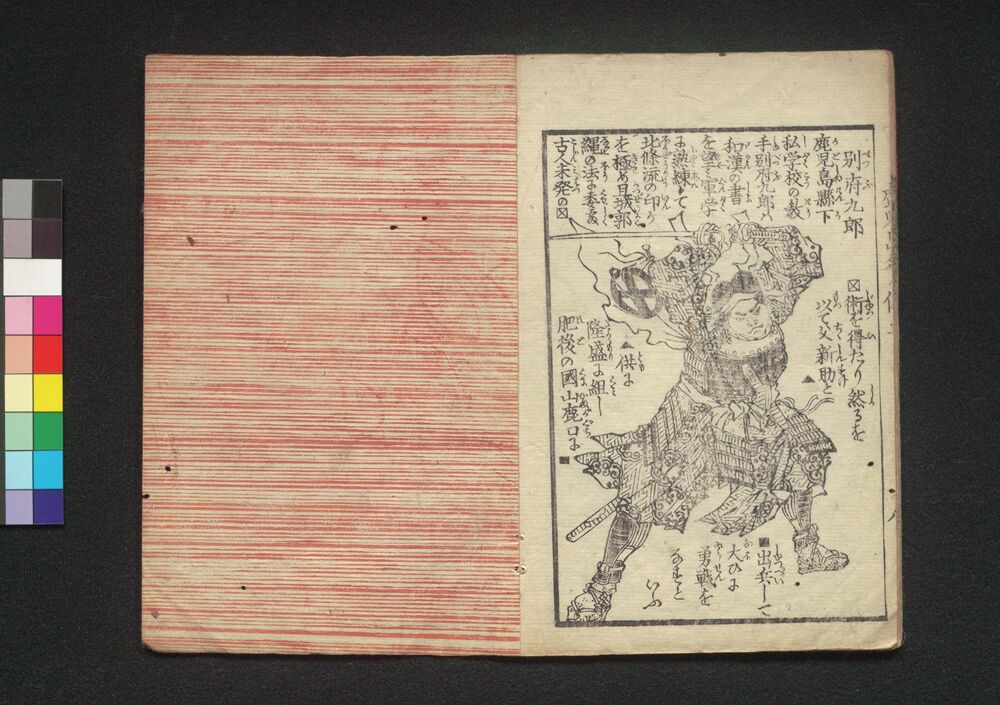 別府九郎
鹿児島縣下
私学校の教
手別府九郎ハ
和漢の書
を
軍学
に熟練して
北條流の印か
を極め且城郭
縄の法に委敷
古人未発の〼
〼術を得たり然るを
以て父新助と▲
▲供に
隆盛に組し
肥後の國山鹿口に■
■出兵して
大ひに
勇戦を
なせしと
いふ